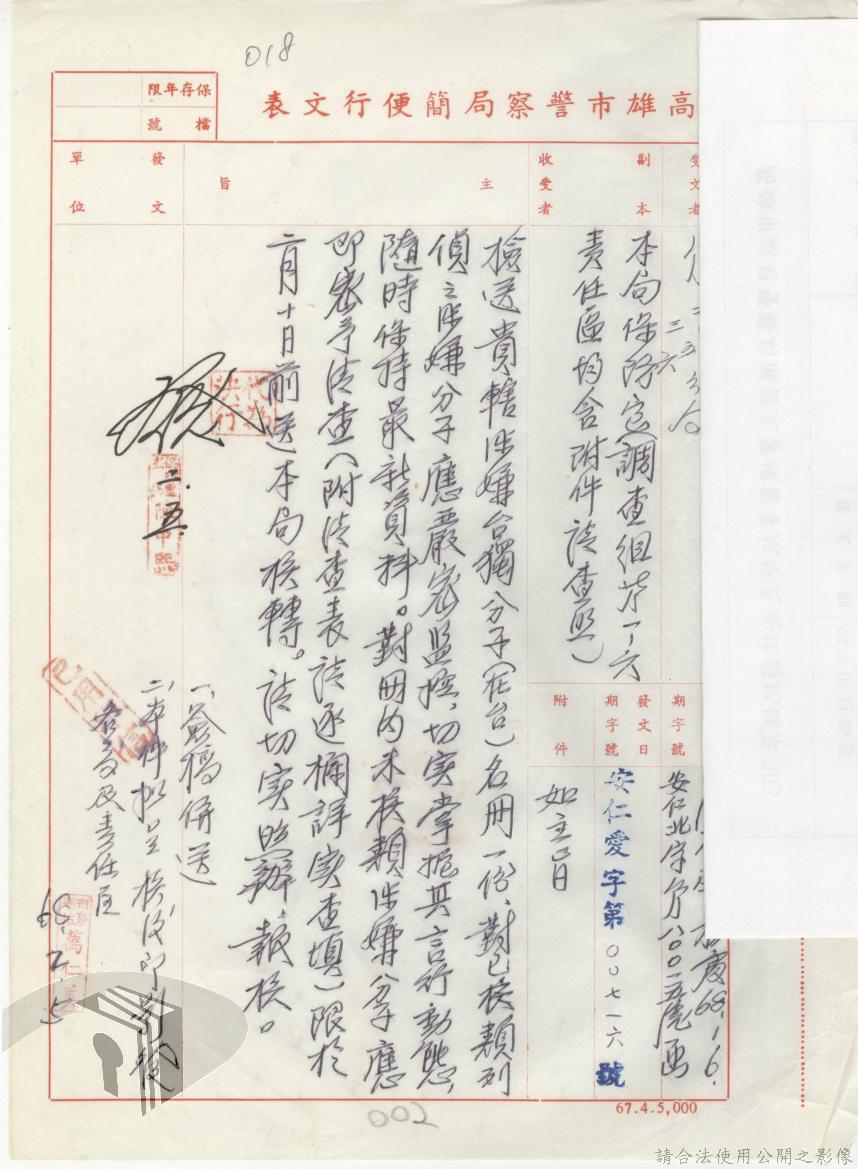 018
高雄市警察局簡便行文表
保存年限
檔號
受文者
副本
收受者
本局保防室(調查組苓一、六
責任區均含附件請查照)
期字號
發文日
期字號
附件
68.1.6.
安仁愛字第00七一六號
如主旨
主旨
檢送貴轄涉嫌台獨分子(在台)名冊一份、對已核類列
偵之涉嫌分子應嚴密監控、切實掌握其言行動態、
隨時保持最新資料。對冊內未核類涉嫌分子應
即密予清查(附清查表請逐欄詳實查填)限於
二月十日前送本局核轉。請切實照辦、報核。
發文單位
代為決行
二.五.
一、簽稿併送
二、本件擬呈核後即
及責任區
68.2.5
已用
67.4.5,000
002
請合法使用公開之影像